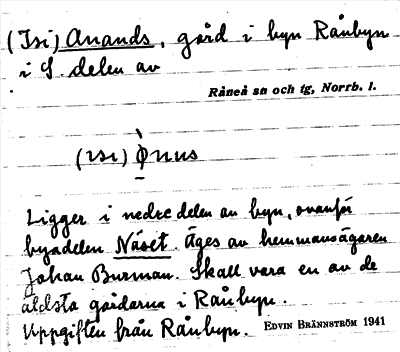 (Isi) Anands, gård i byn Rånbyn
i S. delen av
Råneå sn och tg, Norrb. l.
Ligger i nedre delen av byn, ovanför
byadelen Näset. Äges av hemmansägaren
Johan Burman. Skall vara en av de
äldsta gårdarna i Rånbyn.
Uppgiften från Rånbyn. EDVIN BRÄNNSTRÖM 1941